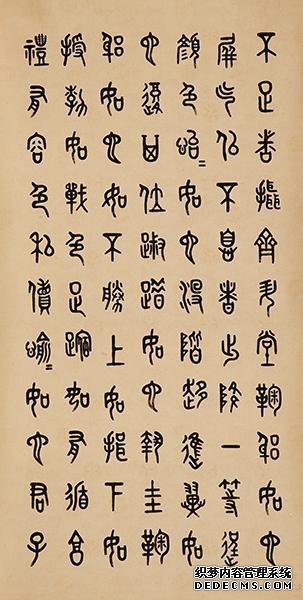 不足者攝齊升堂鞠躬如也
屏气似不息者出降一等逞
顏色怡〓如也沒階趨進翼如
也復其位踧踖如也執圭鞠
躬如也如不勝上如揖下如
授勃如戰色足蹜如有循享
禮有容色私儥愉〓如也君子
织梦内容管理系统
DEDECMS.COM